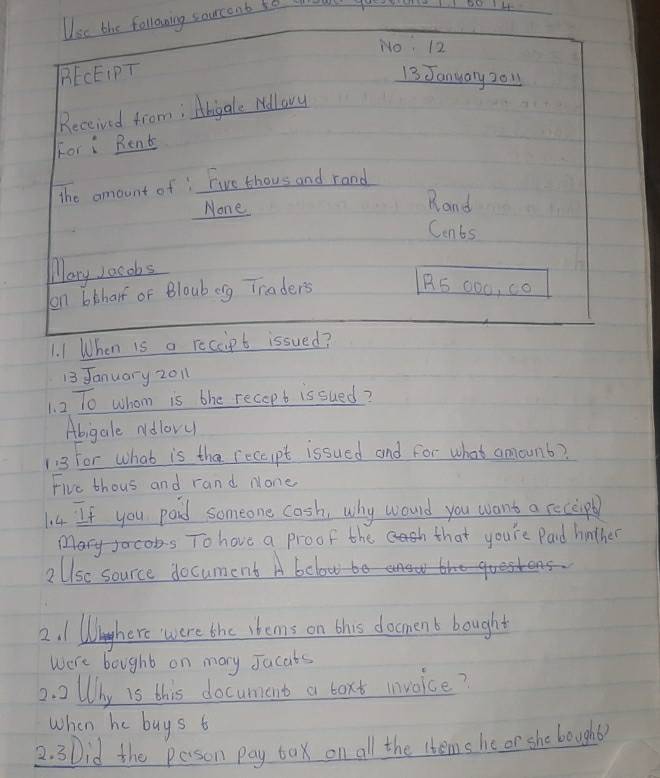 Use the following sourcent to
No : 12
RECEIPT
13 January 2011
Received from : Abigale Ndlovu
For : Rent
The amount of : Five thousand rand
None
Rand
Cents
Mary Jacobs
on behalf of Bloub erg Traders
R5 000,00
1.1 When is a receipt issued?
13 January 2011
1.2 To whom is the recept issued?
Abigale Ndlovu
1.3 For what is the receipt issued and for what amount?
Five thous and rand None
1.4 If you paid someone cash, why would you want a receipt
Mary Jacobs To have a proof the cash that you're paid him/her
2 Use source document A below to answ the questons.
2.1 Where were the items on this docment bought
Were bought on mary Jacats
2.2 Why is this document a taxt invoice?
When he buys t
2.3 Did the person pay tax on all the items he or she bought?